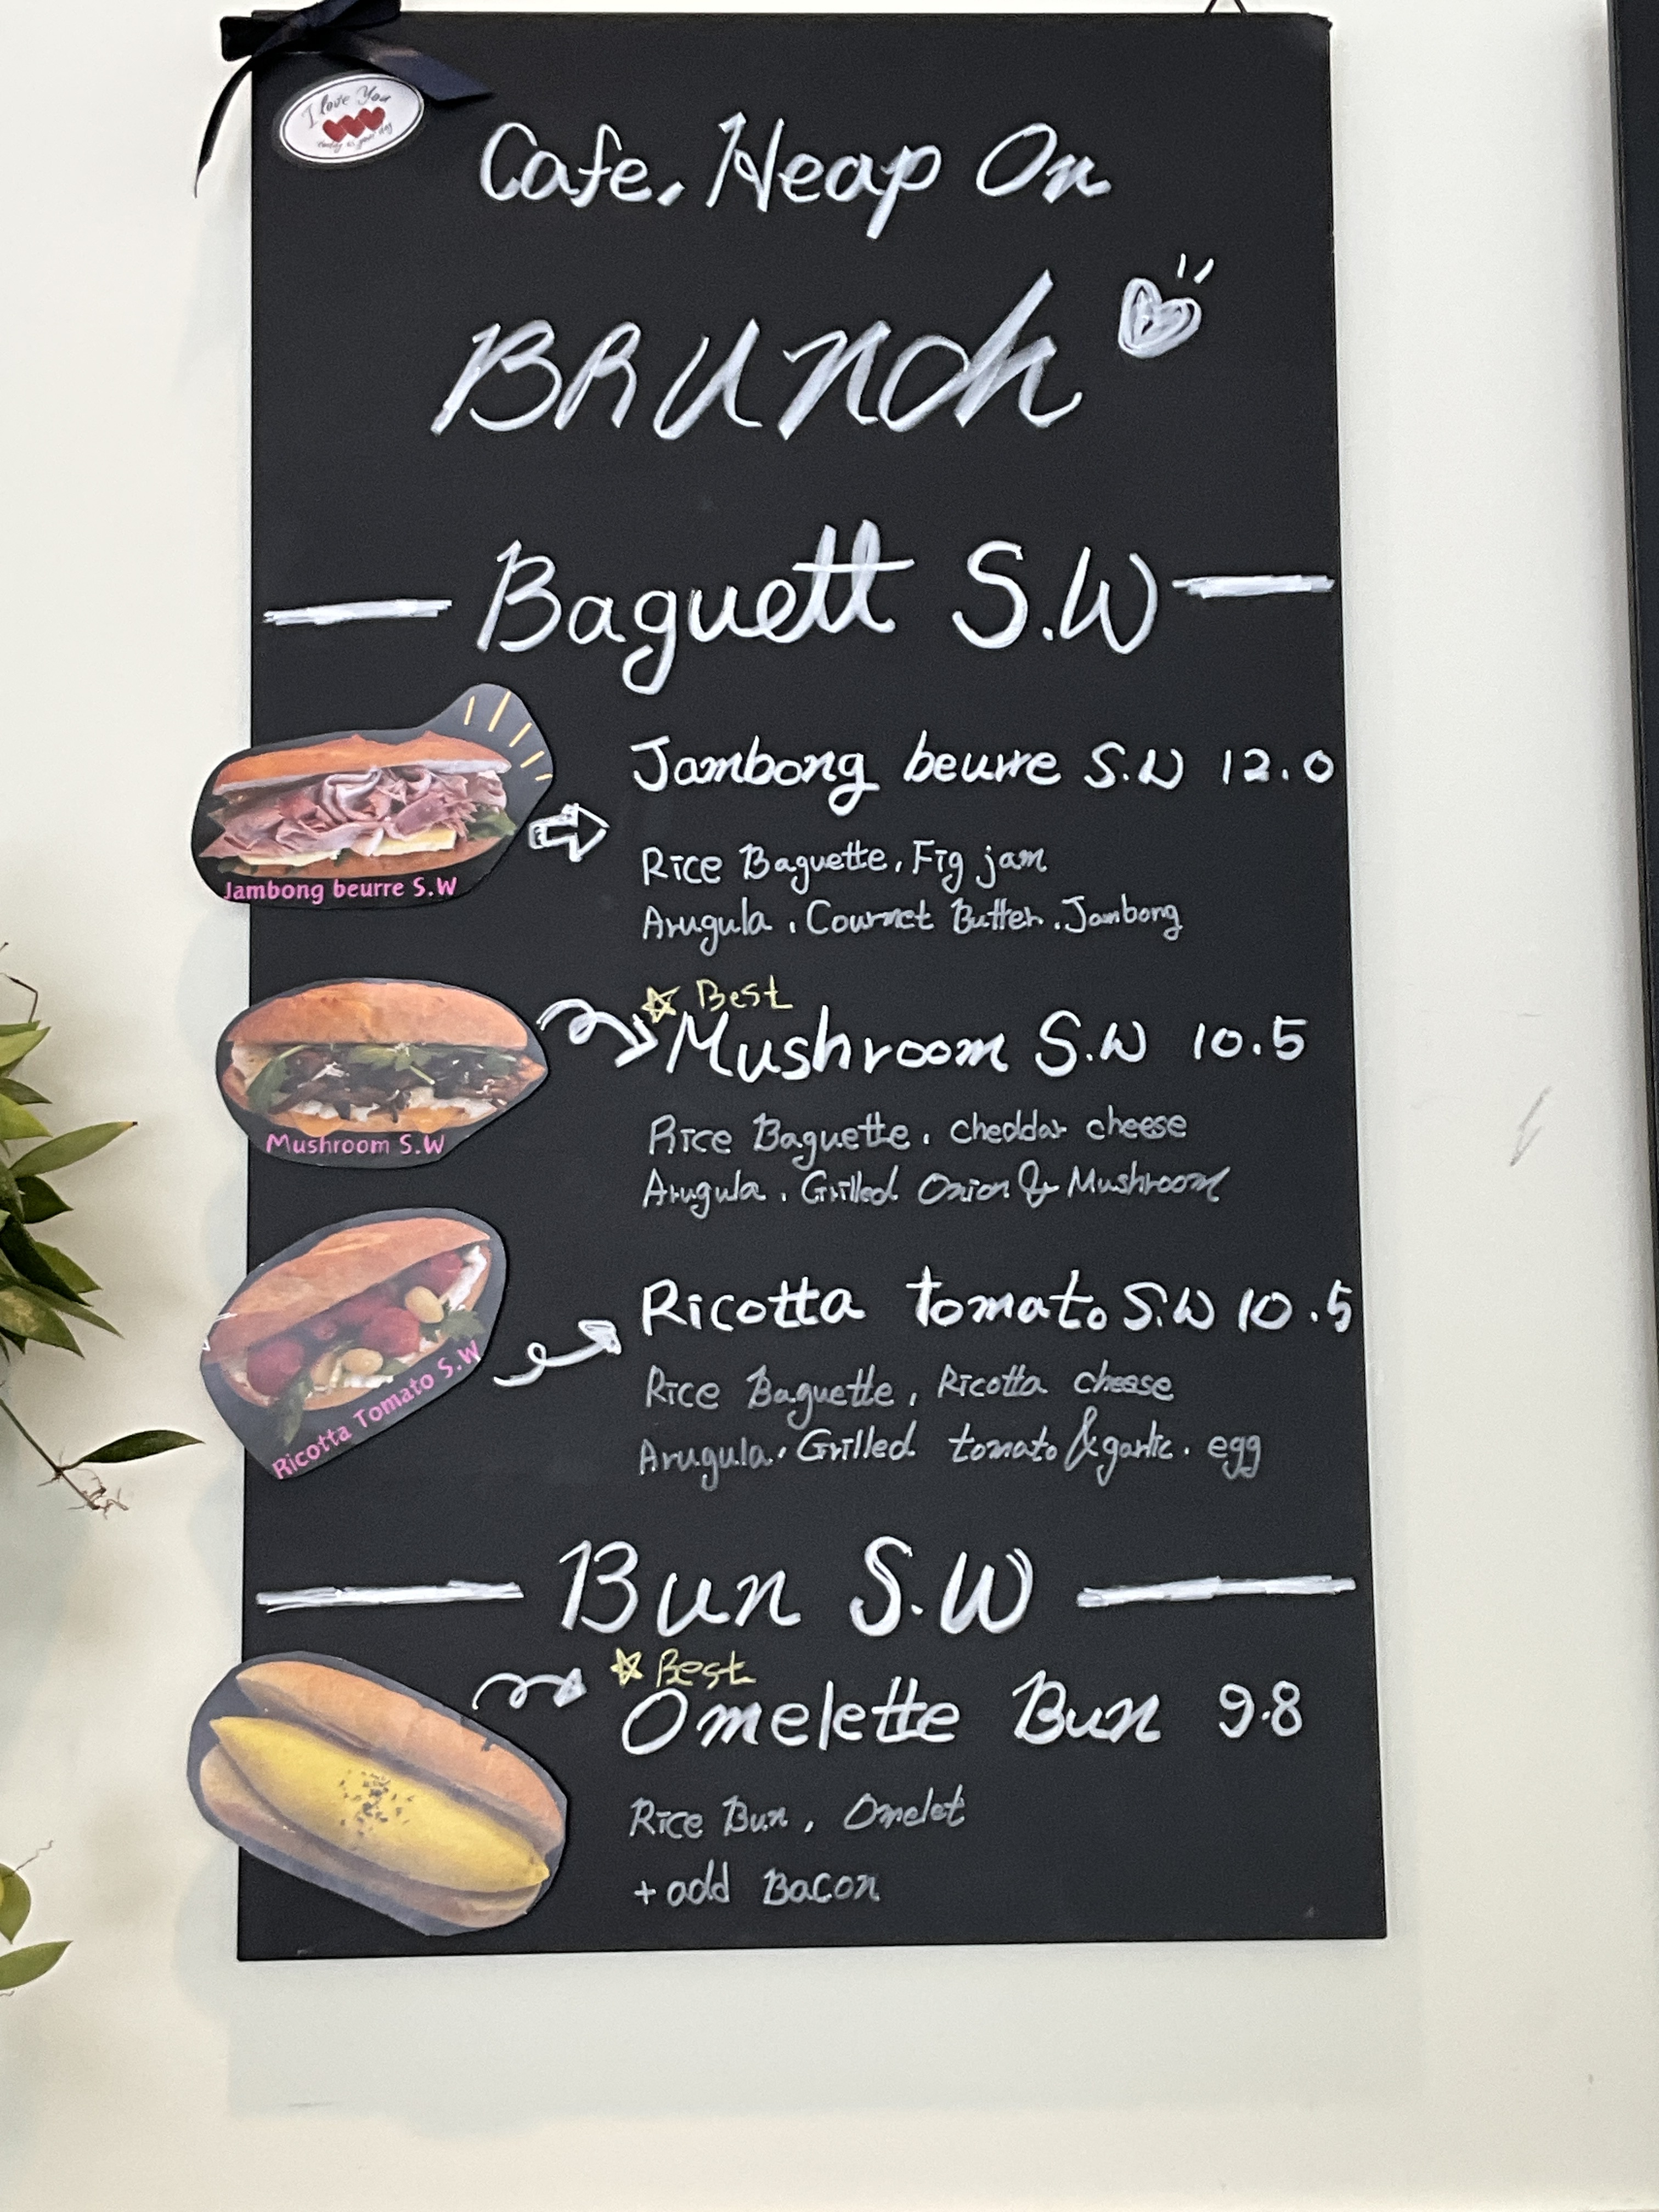 I love You
today is your day
Cafe. Heap On
BRUNch
Baguett S.W
Jambong beurre S.W 12.0
Jambong beurre S.W
Rice Baguette, Fig jam
Arugula, Cournet Butter, Jambong
Best
Mushroom S.W 10.5
Mushroom S.W
Rice Baguette, cheddar cheese
Arugula, Grilled Onion & Mushroom
Ricotta tomato S.W 10.5
Ricotta Tomato S.W
Rice Baguette, Ricotta cheese
Arugula, Grilled tomato & garlic, egg
Bun S.W
Best
Omelette Bun 9.8
Rice Bun, Omelet
+ add Bacon